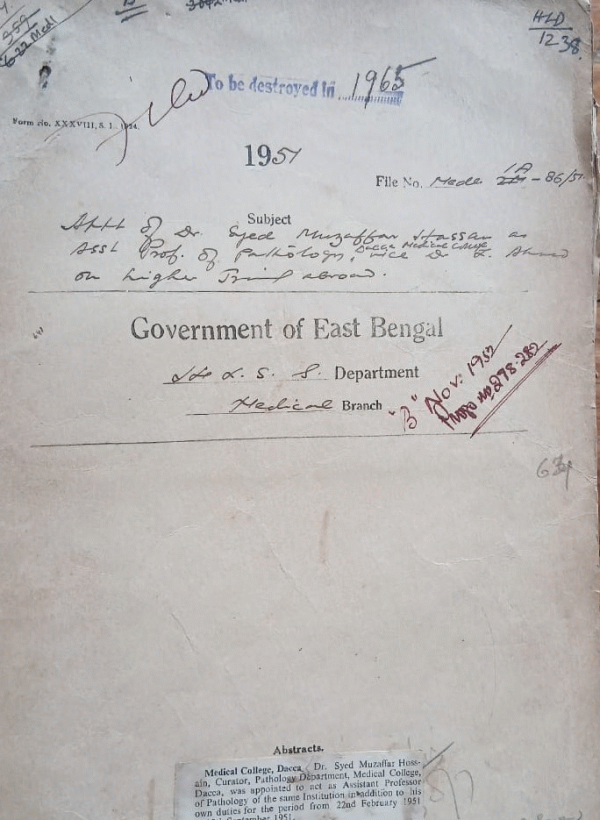 HLD
1238.
622 Medl
To be destroyed in 1965
Form No. XXXVIII, S. 1, 1934.
1951
File No. Mede. 1A - 86/51
Subject
Appt of Dr. Syed Muzaffar Hossain as
Asst Prof. of Pathology, Dacca Medical College vice Dr K. Ahmed
on higher abroad.
Government of East Bengal
H & L. S. G. Department
Medical Branch
"B" Nov: 1952
Progs nos 278-282
Abstracts.
Medical College, Dacca. Dr. Syed Muzaffar Hoss-
ain, Curator, Pathology Department, Medical College,
Dacca, was appointed to act as Assistant Professor
of Pathology of the same Institution in addition to his
own duties for the period from 22nd February 1951
September 1951.